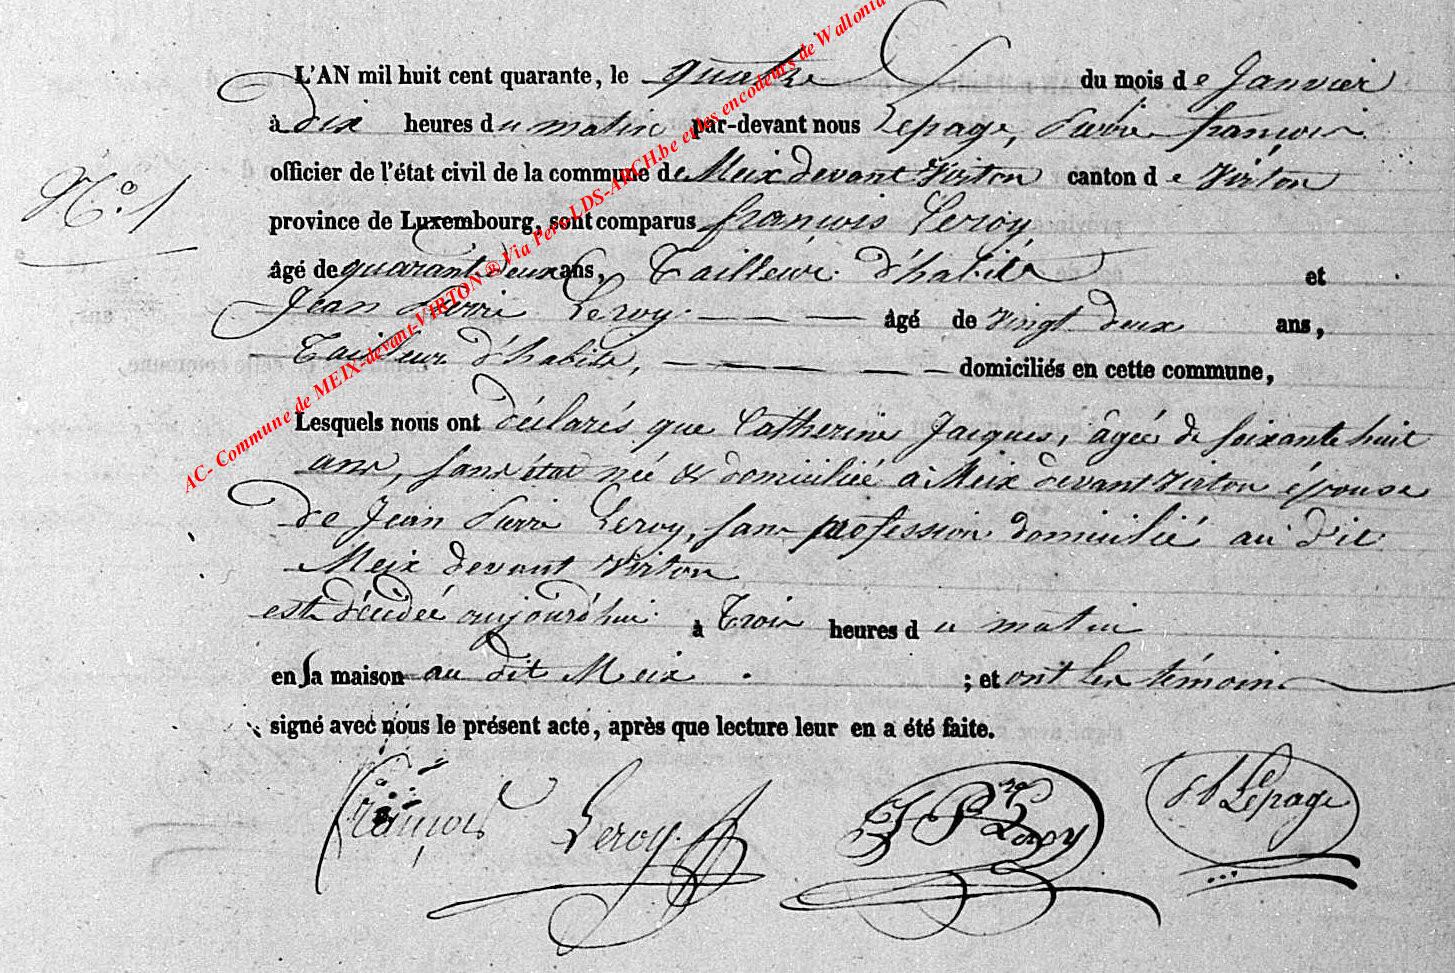 L'AN mil huit cent quarante, le quatre du mois de Janvier
à dix heures du matin par-devant nous Lepage, Pierre françois
officier de l'état civil de la commune de Meix devant Virton canton de Virton
N.° 1
province de Luxembourg, sont comparus françois Leroy
âgé de quarant deux ans, Tailleur d'habits et
Jean Pierre Leroy âgé de vingt deux ans,
Tailleur d'habits, domiciliés en cette commune,
Lesquels nous ont déclarés que Catherine Jacques, âgée de soixante huit
ans, sans état née & domiciliée à Meix devant Virton épouse
de Jean Pierre Leroy, sans profession domicilié au dit
Meix devant Virton
est décédée aujourd'hui à Trois heures du matin
en sa maison au dit Meix ; et ont les témoins
signé avec nous le présent acte, après que lecture leur en a été faite.
François Leroy J Pre Leroy Lepage
AC- Commune de MEIX-devant-VIRTON ® Via Pero LDS-ARCH.be et les encodeurs de Wallonia